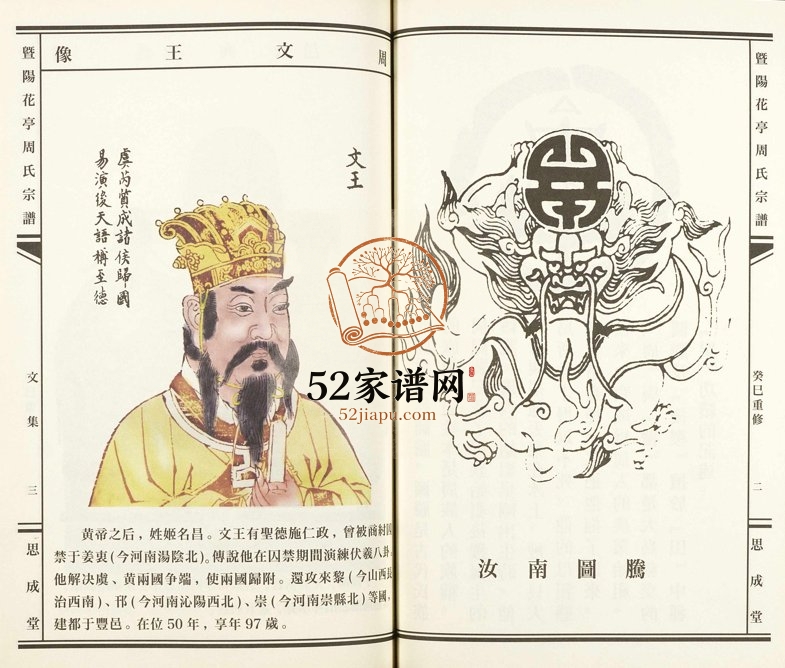 暨陽花亭周氏宗譜
癸巳重修
二
思成堂
汝南圖騰
周文王像
文王
虞芮質成諸侯歸國
易演後天語稱至德
黄帝之后，姓姬名昌。文王有聖德施仁政，曾被商紂囚
禁于姜衷(今河南湯陰北)。傳說他在囚禁期間演練伏羲八卦。
他解决虞、黄兩國争端，使兩國歸附。還攻來黎(今山西長
治西南)、邘(今河南沁陽西北)、崇(今河南崇縣北)等國，
建都于豐邑。在位50年，享年97歲。
暨陽花亭周氏宗譜
文集
三
思成堂
52家谱网
52jiapu.com